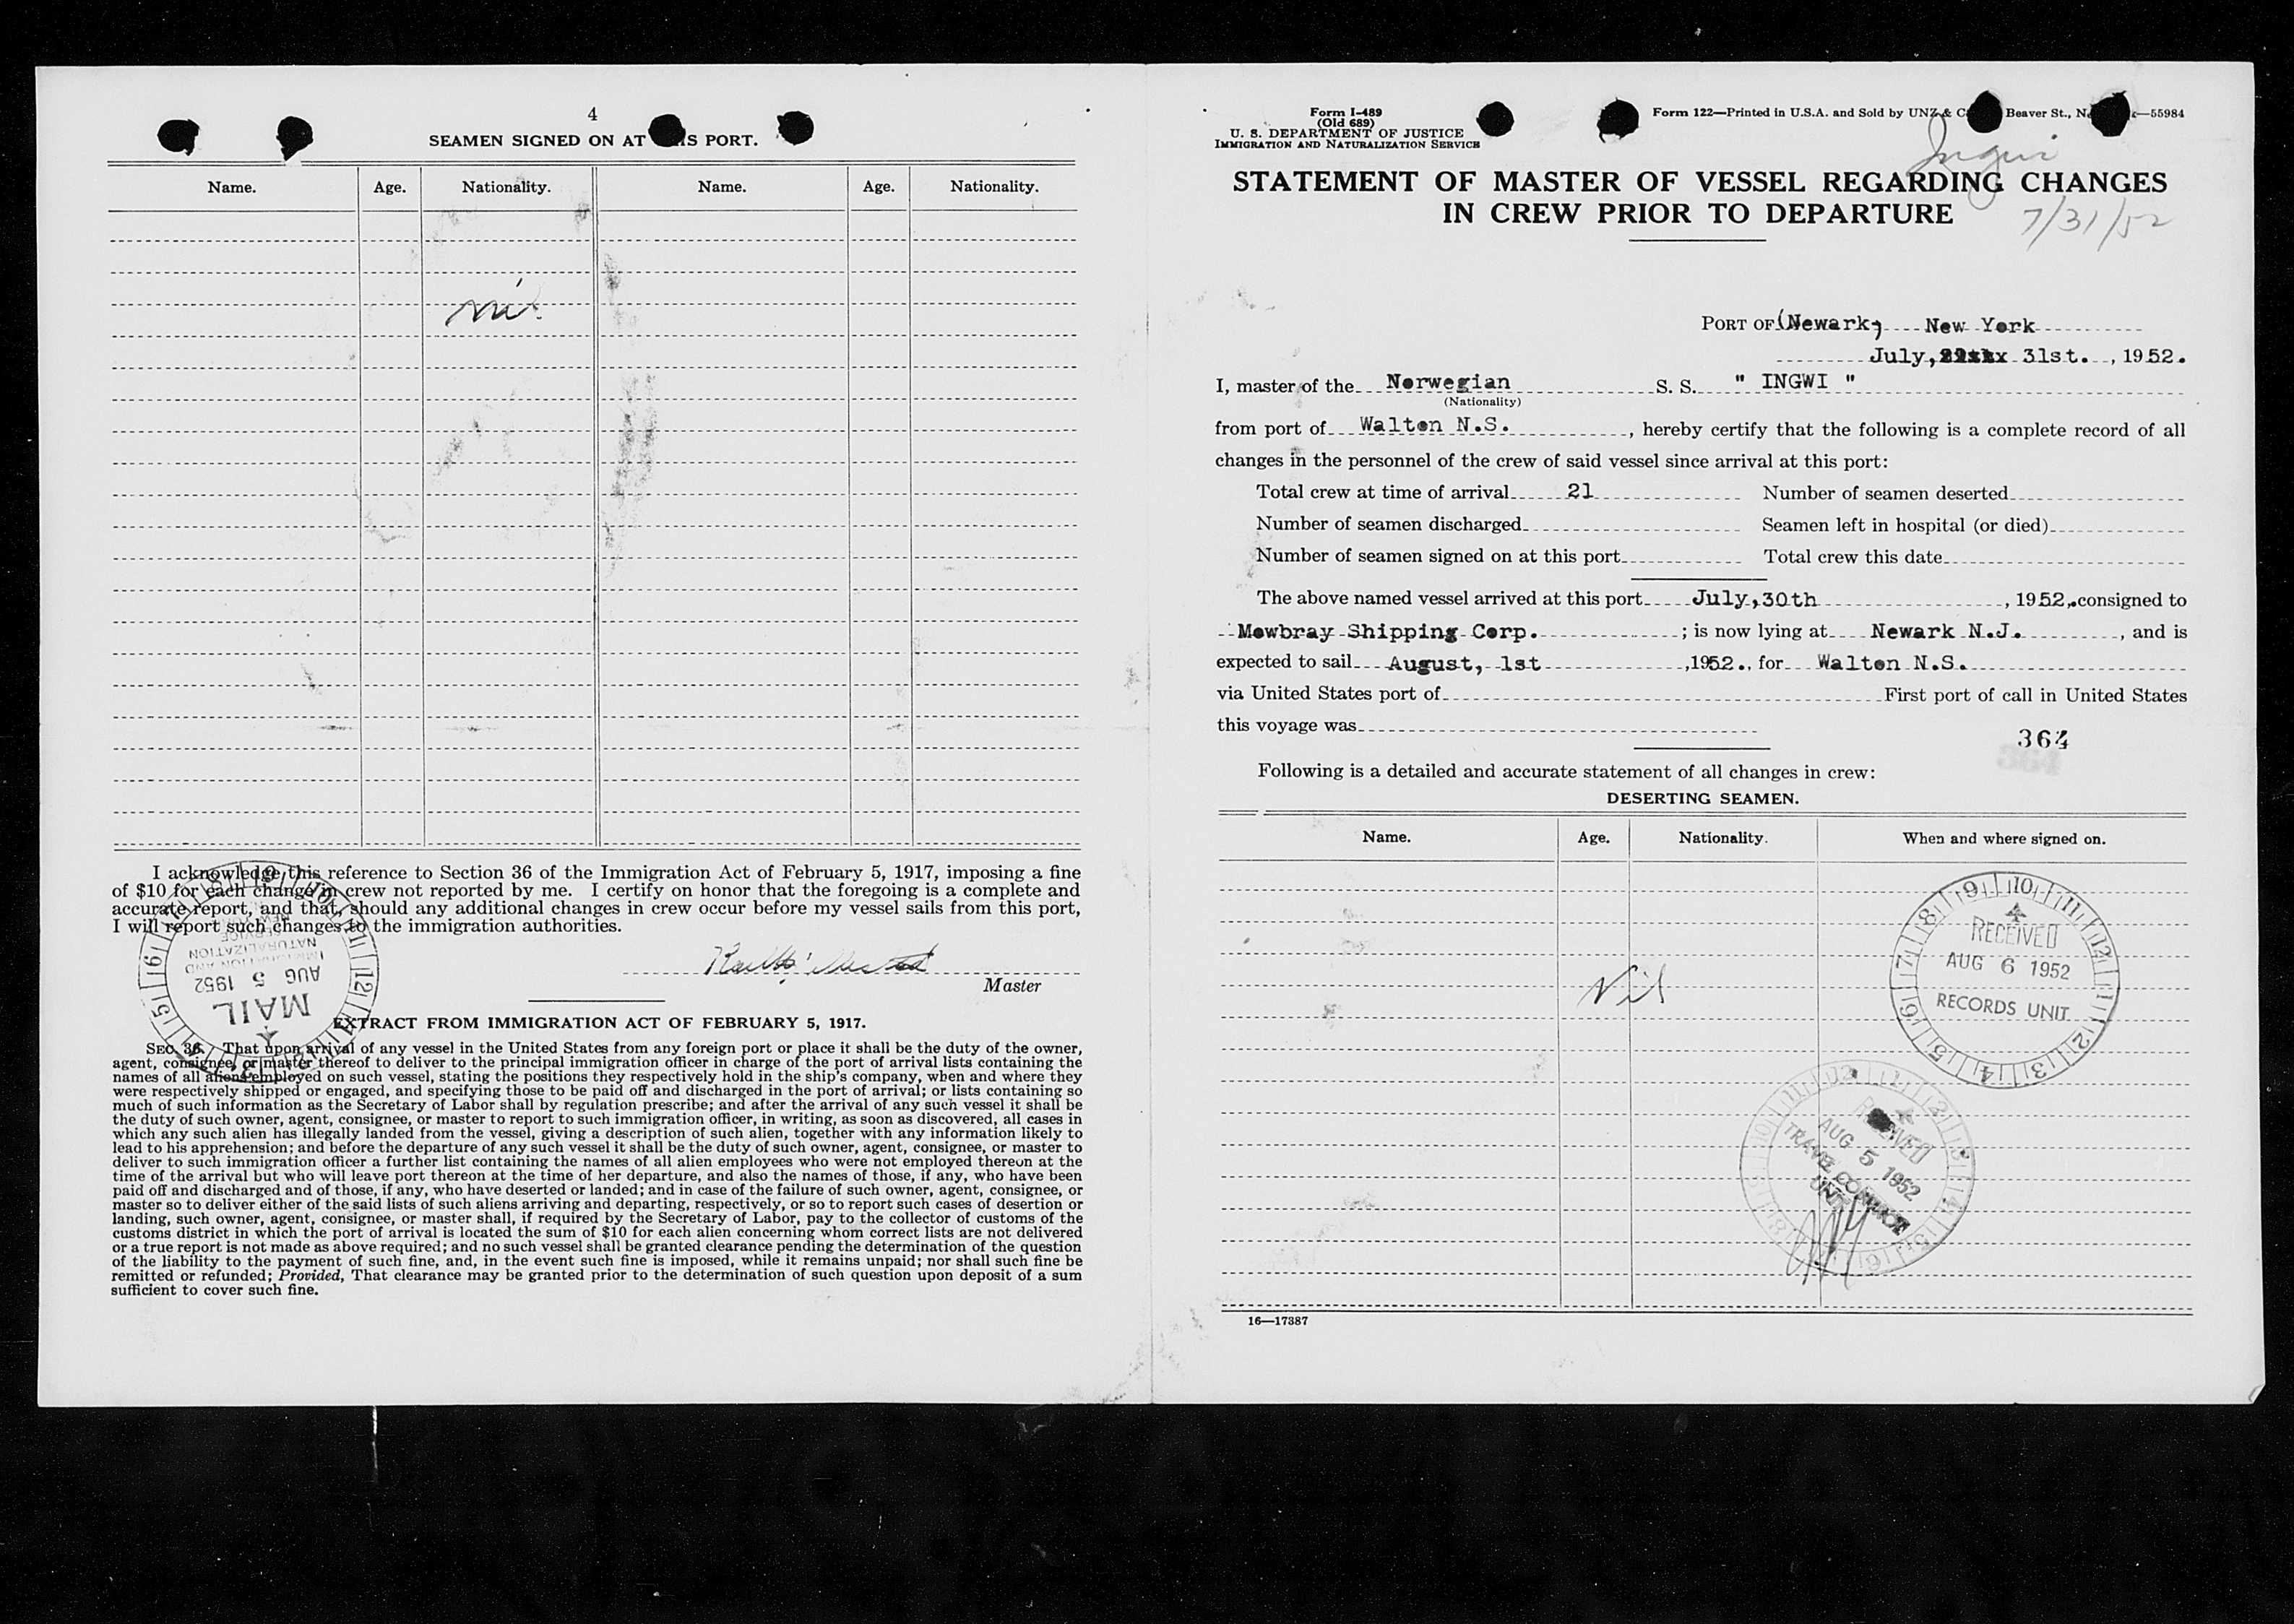 4
SEAMEN SIGNED ON AT THIS PORT.
Name. Age. Nationality. Name. Age. Nationality.
nil
I acknowledge this reference to Section 36 of the Immigration Act of February 5, 1917, imposing a fine
of $10 for each change in crew not reported by me. I certify on honor that the foregoing is a complete and
accurate report, and that, should any additional changes in crew occur before my vessel sails from this port,
I will report such changes to the immigration authorities.
Master
MAIL
AUG 5 1952
IMMIGRATION AND
NATURALIZATION
SERVICE
NEW YORK
EXTRACT FROM IMMIGRATION ACT OF FEBRUARY 5, 1917.
SEC. 36. That upon arrival of any vessel in the United States from any foreign port or place it shall be the duty of the owner,
agent, consignee, or master thereof to deliver to the principal immigration officer in charge of the port of arrival lists containing the
names of all aliens employed on such vessel, stating the positions they respectively hold in the ship's company, when and where they
were respectively shipped or engaged, and specifying those to be paid off and discharged in the port of arrival; or lists containing so
much of such information as the Secretary of Labor shall by regulation prescribe; and after the arrival of any such vessel it shall be
the duty of such owner, agent, consignee, or master to report to such immigration officer, in writing, as soon as discovered, all cases in
which any such alien has illegally landed from the vessel, giving a description of such alien, together with any information likely to
lead to his apprehension; and before the departure of any such vessel it shall be the duty of such owner, agent, consignee, or master to
deliver to such immigration officer a further list containing the names of all alien employees who were not employed thereon at the
time of the arrival but who will leave port thereon at the time of her departure, and also the names of those, if any, who have been
paid off and discharged and of those, if any, who have deserted or landed; and in case of the failure of such owner, agent, consignee, or
master so to deliver either of the said lists of such aliens arriving and departing, respectively, or so to report such cases of desertion or
landing, such owner, agent, consignee, or master shall, if required by the Secretary of Labor, pay to the collector of customs of the
customs district in which the port of arrival is located the sum of $10 for each alien concerning whom correct lists are not delivered
or a true report is not made as above required; and no such vessel shall be granted clearance pending the determination of the question
of the liability to the payment of such fine, and, in the event such fine is imposed, while it remains unpaid; nor shall such fine be
remitted or refunded; Provided, That clearance may be granted prior to the determination of such question upon deposit of a sum
sufficient to cover such fine.
Form I-489
(Old 689)
U. S. DEPARTMENT OF JUSTICE
IMMIGRATION AND NATURALIZATION SERVICE
Form 122—Printed in U.S.A. and Sold by UNZ & Beaver St., —55984
Ingwi
STATEMENT OF MASTER OF VESSEL REGARDING CHANGES
IN CREW PRIOR TO DEPARTURE
7/31/52
PORT OF (Newark) New York
July, 31st. , 1952.
I, master of the Norwegian S. S. " INGWI "
(Nationality)
from port of Walton N.S. , hereby certify that the following is a complete record of all
changes in the personnel of the crew of said vessel since arrival at this port:
Total crew at time of arrival 21 Number of seamen deserted
Number of seamen discharged Seamen left in hospital (or died)
Number of seamen signed on at this port Total crew this date
The above named vessel arrived at this port July, 30th , 1952, consigned to
Mowbray Shipping Corp. ; is now lying at Newark N.J. , and is
expected to sail August, 1st ,1952., for Walton N.S.
via United States port of First port of call in United States
this voyage was
364
Following is a detailed and accurate statement of all changes in crew:
DESERTING SEAMEN.
Name. Age. Nationality. When and where signed on.
Nil
RECEIVED
AUG 6 1952
RECORDS UNIT
RECEIVED
AUG 5 1952
TRAVEL CONTROL
UNIT
16—17387